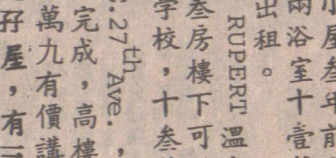 小屋叁年前
兩浴室十壹
出租。
RUPERT 溫
叁房樓下可
學校，十叁
.27th Ave.，
完成，高樓
萬九有價講
孖屋，有